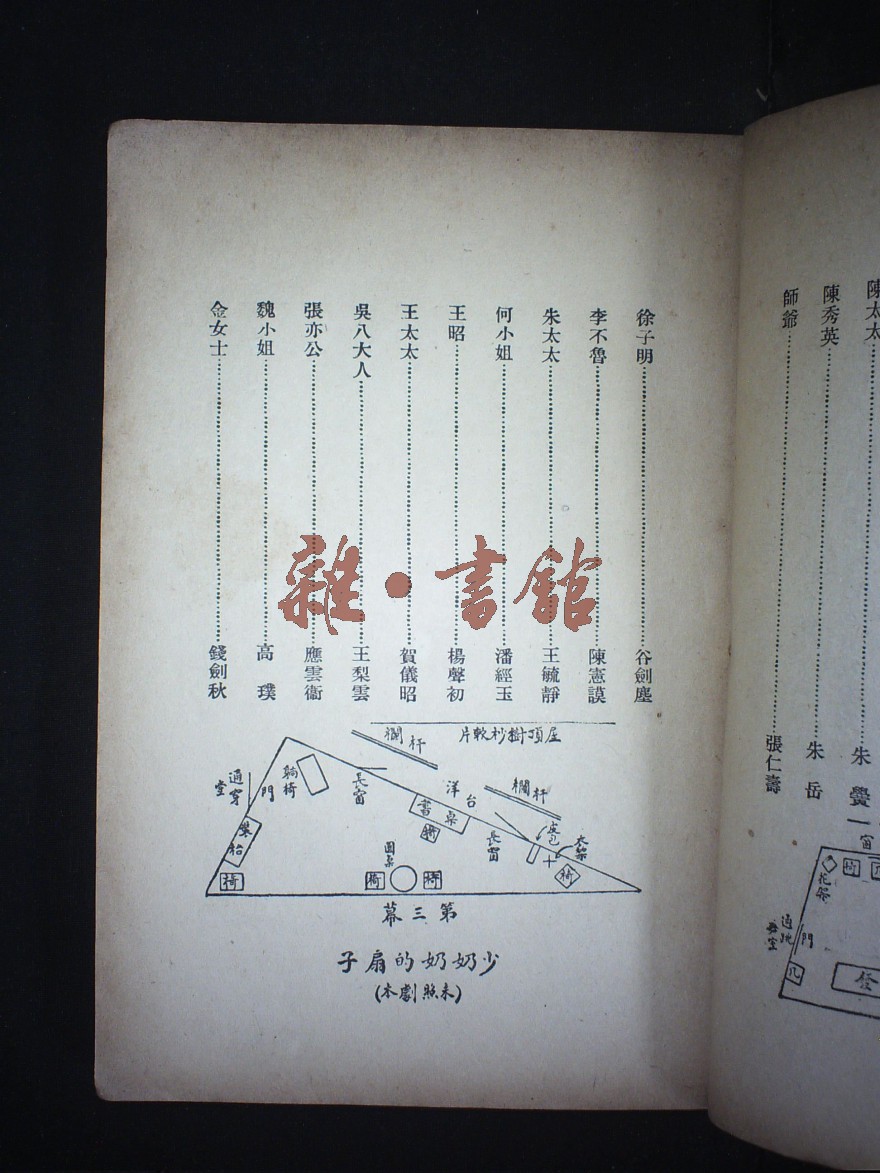 陳太太
陳秀英
朱岳
師爺……張仁壽
徐子明……谷劍塵
李不魯……陳憲謨
朱太太……王毓靜
何小姐……潘經玉
王昭……楊聲初
王太太……賀儀昭
吳八大人……王梨雲
張亦公……應雲衞
魏小姐……高璞
金女士……錢劍秋
雜·書館
屋頂樹杪軟片
欄杆
欄杆
洋台
長窗
長窗
書桌
椅
躺椅
門
通穿堂
椅
圓桌
椅
椅
衣架
椅
第三幕
少奶奶的扇子
(未照劇本)
窗
椅
花架
門
几